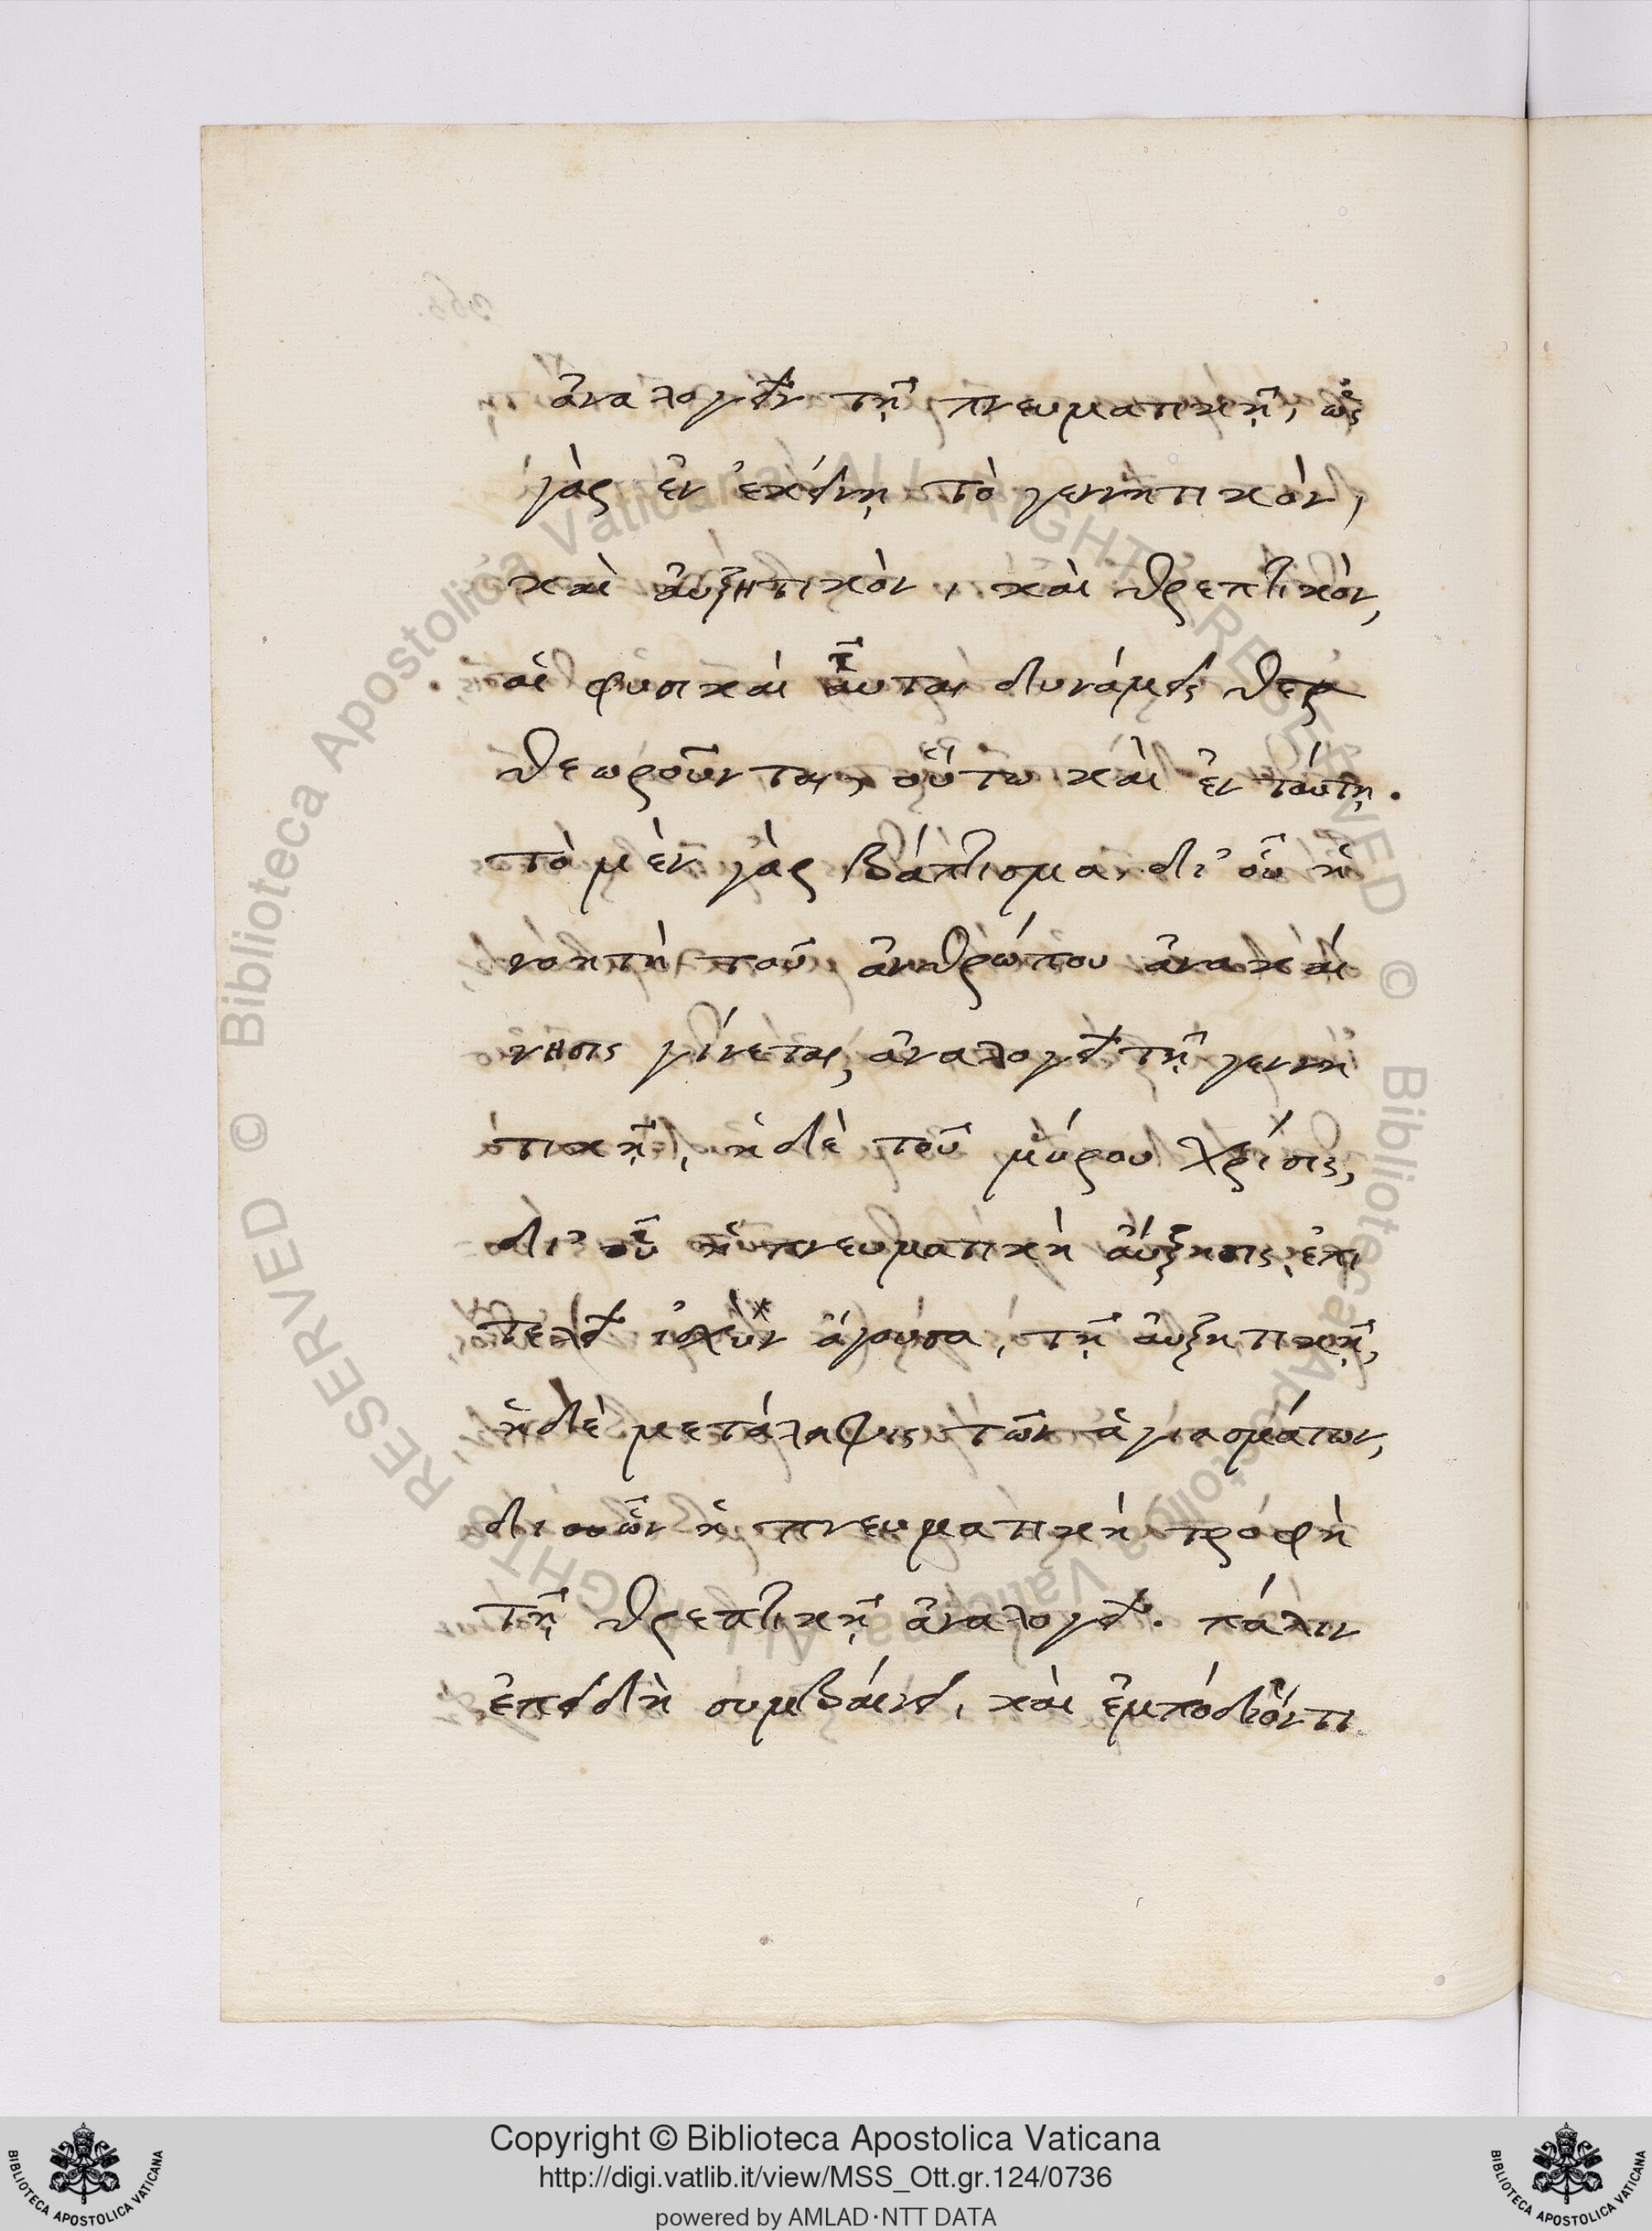 ἀναλογεῖν τῇ πνευματικῇ, ὡς
γὰρ ἐν ἐκείνῃ τὸ γεννητικὸν,
καὶ αὐξητικὸν, καὶ θρεπτικὸν,
αἱ φυσικαὶ αὗται δυνάμεις
θεωροῦνται, οὕτω καὶ ἐν ταύτῃ.
τὸ μὲν γὰρ βάπτισμα, δι' οὗ ἡ
νοητὴ τοῦ ἀνθρώπου ἀνακαί
νησις γίνεται, ἀναλογεῖ τῇ γεννη
τικῇ, ἡ δὲ τοῦ μύρου χρίσις,
δι' οὗ ἡ πνευματικὴ αὔξησις, ἐπι
τελεῖ ἰσχὺν ἄγουσα, τῇ αὐξητικῇ,
ἡ δὲ μετάληψις τῶν ἁγιασμάτων,
δι ὧν ἡ πνευματικὴ τροφὴ
τῇ θρεπτικῇ ἀναλογεῖ. πάλιν
ἐπειδὴ συμβαίνει, καὶ
Copyright © Biblioteca Apostolica Vaticana
http://digi.vatlib.it/view/MSS_Ott.gr.124/0736
powered by AMLAD·NTT DATA